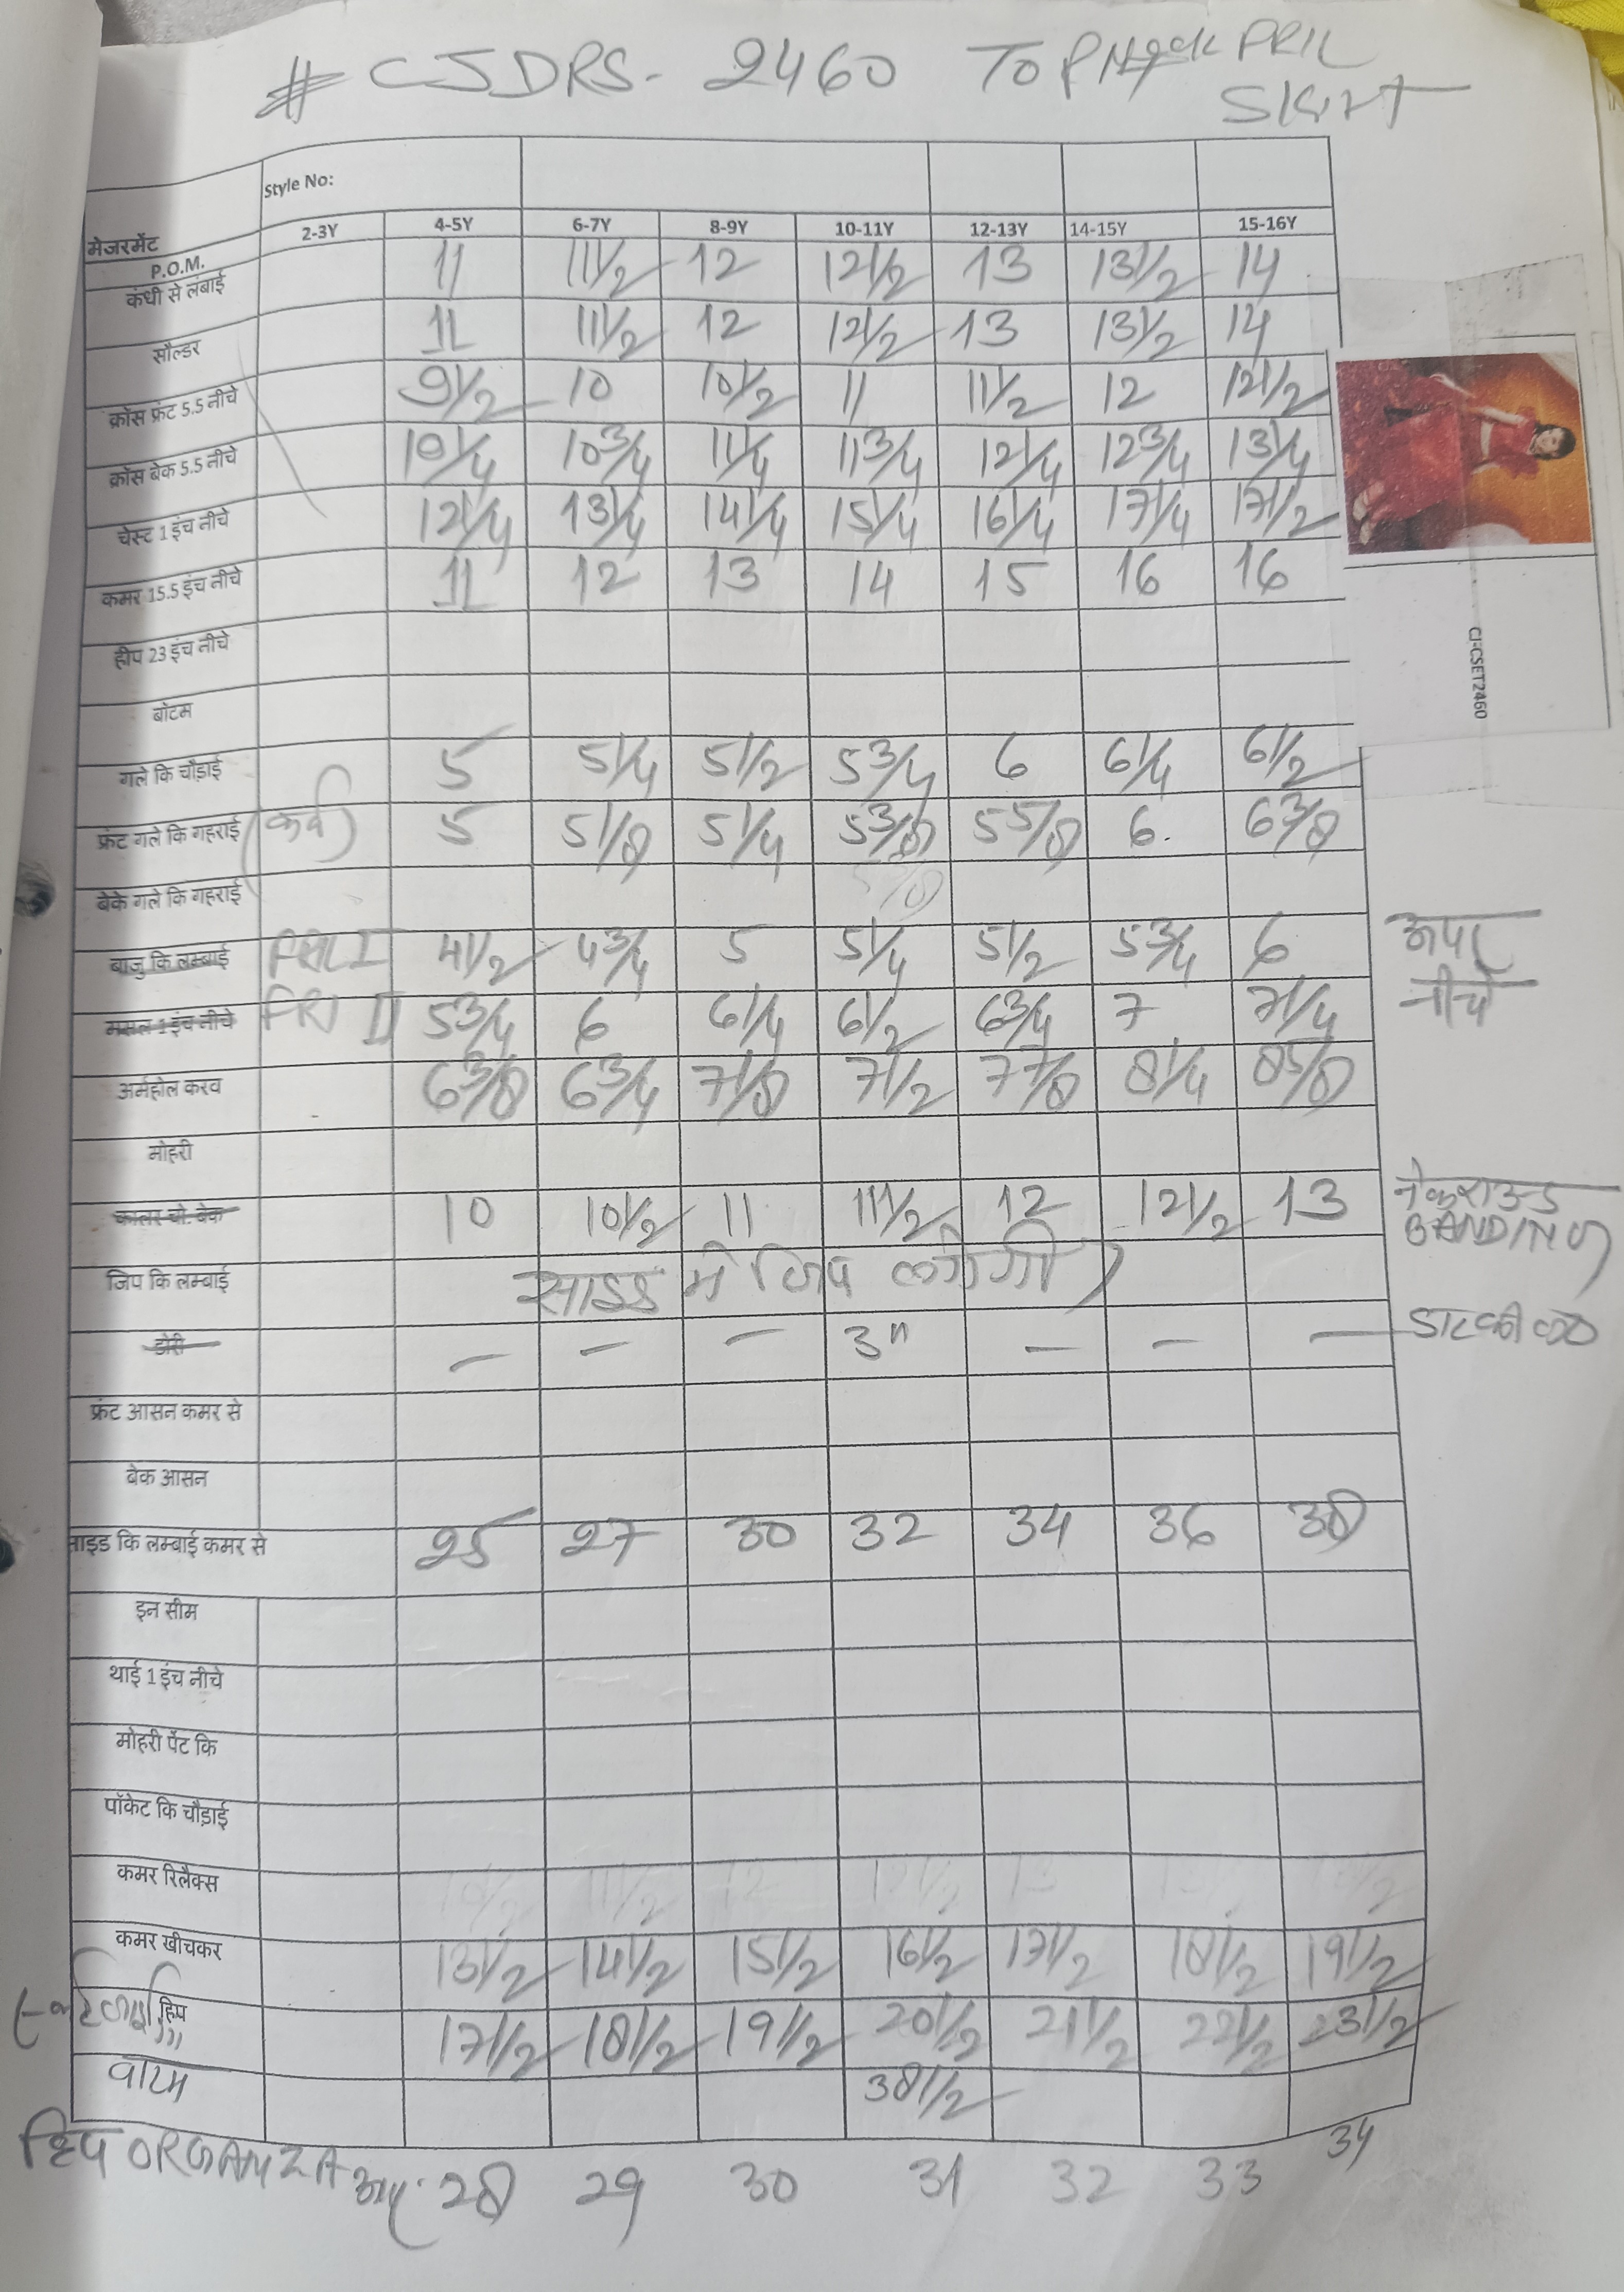 # CSDRS- 2460 TOP
SKIRT
Style No:
मेजरमेंट 2-3Y 4-5Y 6-7Y 8-9Y 10-11Y 12-13Y 14-15Y 15-16Y
P.O.M.
कंधी से लंबाई 11 11 1/2 12 12 1/2 13 13 1/2 14
सौल्डर 11 11 1/2 12 12 1/2 13 13 1/2 14
क्रॉस फ्रंट 5.5 नीचे 9 1/2 10 10 1/2 11 11 1/2 12 12 1/2
क्रॉस बेक 5.5 नीचे 10 1/4 10 3/4 11 1/4 11 3/4 12 1/4 12 3/4 13 1/4
चेस्ट 1 इंच नीचे 12 1/4 13 1/4 14 1/4 15 1/4 16 1/4 17 1/4 17 1/2
कमर 15.5 इंच नीचे 11 12 13 14 15 16 16
हीप 23 इंच नीचे
बॉटम
गले कि चौड़ाई 5 5 1/4 5 1/2 5 3/4 6 6 1/4 6 1/2
फ्रंट गले कि गहराई (कर्व) 5 5 1/8 5 1/4 5 3/8 5 5/8 6. 6 3/8
बेके गले कि गहराई
बाजु कि लम्बाई FRIL I 4 1/2 4 3/4 5 5 1/4 5 1/2 5 3/4 6 ऊपर
मसल 1 इंच नीचे FRI II 5 3/4 6 6 1/4 6 1/2 6 3/4 7 7 1/4 नीचे
अर्महोल करव 6 3/8 6 3/4 7 1/8 7 1/2 7 7/8 8 1/4 8 5/8
मोहरी
कालर चो. बेक 10 10 1/2 11 11 1/2 12 12 1/2 13 नेक राउड
BANDING
जिप कि लम्बाई साइड में जिप लगेगी
डोरी — — — 3" — — —
फ्रंट आसन कमर से
बेक आसन
साइड कि लम्बाई कमर से 25 27 30 32 34 36 38
इन सीम
थाई 1 इंच नीचे
मोहरी पेंट कि
पॉकेट कि चौड़ाई
कमर रिलैक्स
कमर खीचकर 13 1/2 14 1/2 15 1/2 16 1/2 17 1/2 18 1/2 19 1/2
हिप 17 1/2 18 1/2 19 1/2 20 1/2 21 1/2 22 1/2 23 1/2
बॉटम 38 1/2
हिप ORGANZA 28 29 30 31 32 33 34
CJ-CSET2460